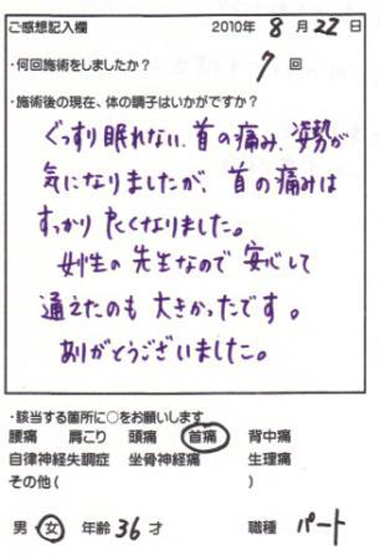 ご感想記入欄 2010年 8月 22日
・何回施術をしましたか？ 7 回
・施術後の現在、体の調子はいかがですか？
ぐっすり眠れない、首の痛み、姿勢が
気になりましたが、首の痛みは
すっかり良くなりました。
女性の先生なので安心して
通えたのも大きかったです。
ありがとうございました。
・該当する箇所に○をお願いします
腰痛 肩こり 頭痛 首痛 背中痛
自律神経失調症 坐骨神経痛 生理痛
その他( )
男 女 年齢 36 才 職種 パート